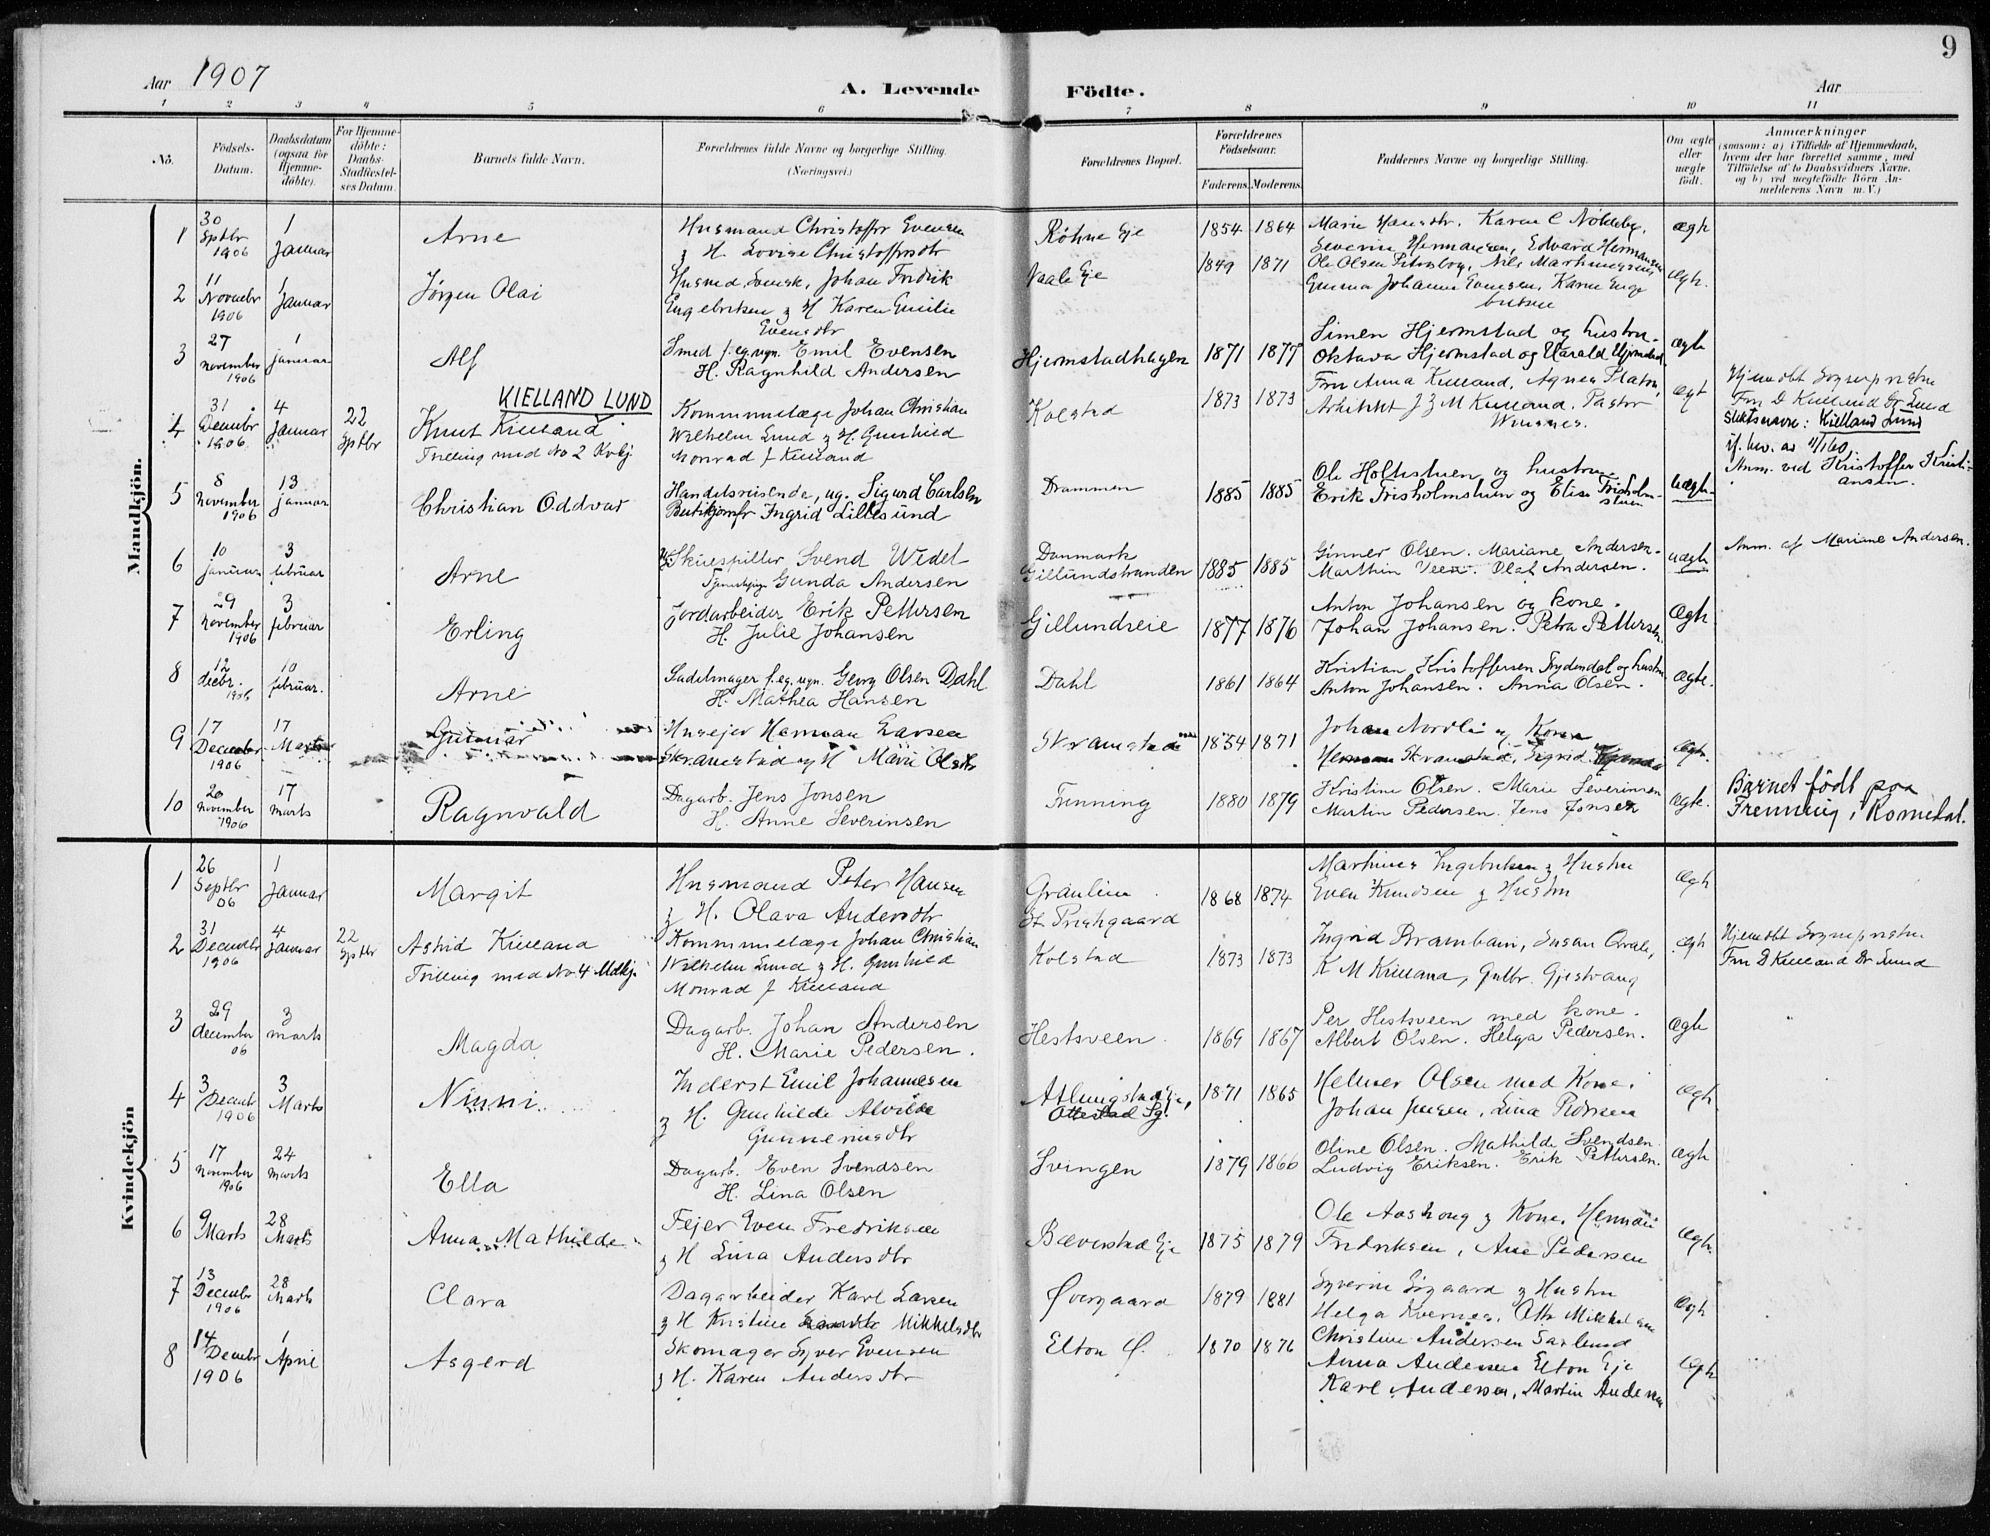 9
Aar 1907
A. Levende Födte.
Aar
1 2 3 4 5 6 7 8 9 10 11
No.
Födsels-Datum.
Daabsdatum (ogsaa for Hjemme-döbte).
For Hjemme-döbte: Daabs-Stadfæstel-ses Datum.
Barnets fulde Navn.
Forældrenes fulde Navne og borgerlige Stilling.
(Næringsvei.)
Forældrenes Bopæl.
Forældrenes Födselsaar.
Faderens. Moderens.
Faddernes Navne og borgerlige Stilling.
Om ægte eller uægte födt.
Anmærkninger
(saasom: a) i Tilfælde af Hjemmedaab,
hvem der har forrettet samme, med
Tilföielse af to Daabsvidners Navne.
og b) ved uægtefödte Börn An-
melderens Navn m. V.)
Mandkjön.
1 30 Sptbr 1906 1 Januar Arne
Husmand Christoffer Evensen
& H. Lovise Christoffersdtr
Röhne Eje 1854 1864
Marie Hansdtr. Karen C Nöldeby.
Severin Hermansen, Edvard Hermansen
Ægte
2 11 Novembr 1906 1 Januar Jörgen Olai
Husmd Svensk, Johan Fredrik
Engebretsen & H Karen Emilie
Evensdtr
Vaale Eje 1849 1871
Ægte.
3 27 november 1906 1 januar Alf
Smed f. eg. regn. Emil Evensen
H. Ragnhild Andersen
Hjermstadhagen 1871 1877
Simen Hjermstad og hustru.
Oktava Hjermstad og Harald Hjermstad
Ægte
4 31 Decembr 1906 4 Januar 22 Sptbr
KIELLAND LUND
Knut Kielland
Trilling med No 2 Kvkj
Kommunelæge Johan Christian
Wilhelm Lund & H. Gunhild
Monrad f Kielland
Kolstad 1873 1873
Fru Anna Kielland, Agnes Platou,
Arkitekt J Z M Kielland, Pastor
Ægt
Hjemdbt Sogneprestn
Fru D Kielland Dr Lund
Slektsnavn: Kielland Lund
jf. bev. av 4/1 60
5 8 november 1906 13 januar Christian Oddvar
Handelsreisende, ug. Sigurd Carlsen
Butikjomfr Ingrid Lillesund
Drammen 1885 1885
Ole Holtestuen og hustru
Erik Frisholmstuen og Elise Frisholm-
stuen
Uægte
Anm. ved Kristoffer Kristi-
ansen.
6 10 januar 3 februar Arne
Skuespiller Svend Wedel
Tjenestepige Gunda Andersen
Danmark
Gillundstranden 1885 1885
Ginner Olsen. Mariane Andersen.
Marthin Veen. Olaf Andersen.
uægte
Anm. af Mariane Andersen.
7 29 november 1906 3 februar Erling
Jordarbeider Erik Pettersen
H. Julie Johansen
Gillundseie 1877 1876
Anton Johansen og kone.
Johan Johansen. Petra Pettersen.
Ægte
8 12 decbr. 1906 10 februar. Arne
Sadelmager f. eg. regn. Georg Olsen Dahl
H. Mathea Hansen
Dahl 1861 1864
Kristian Kristoffersen Frydendal og hustru
Anton Johansen. Anna Olsen.
Ægte.
9 17 December 1906 17 Marts Gunnar
Husejer Herman Larsen
Skramstad og H Marie Olsdtr
Skramstad 1854 1871
Johan Nordli og Kone
Herman Skramstad, Sigrid
Ægte.
10 20 november 1906 17 marts Ragnvald
Dagarb. Jens Jonsen
H. Anne Severinsen
Frenning 1880 1879
Kristine Olsen. Marie Severinsen
Martin Pedersen. Jens Jonsen
Ægte.
Barnet födt paa
Frenning i Romedal.
Kvindekjön
1 26 Septbr 06 1 Januar Margit
Husmand Peter Hansen
& H. Olava Andersdtr
St Prestgaard 1868 1874
Martinus Ingebretsen & Hustru
Even Knudsen & Hustru
Ægte
2 31 Decembr 1906 4 Januar 22 Sptbr Astrid Kielland
Trilling med No 4 Mdkj
Kommunelæge Johan Christian
Wilhelm Lund & H. Gunhild
Monrad f Kielland
Kolstad 1873 1873
Ingrid Brambani, Susan Qvale,
K M Kielland, Gulbr. Gjestvang
Ægte
Hjemdbt Sogneprestn
Fru D Kielland Dr Lund
3 29 december 06 3 marts Magda
Dagarb. Johan Andersen
H. Marie Pedersen.
Hestsveen. 1869 1867
Per Hestsveen med kone.
Albert Olsen. Helga Pedersen.
Ægte
4 3 Decembr 1906 3 Marts Ninni
Inderst Emil Johannesen
& H. Gunhilde Alvilde
Gunnerinsdtr
Atlungstad Eje,
Ottestad Sg. 1871 1865
Helmer Olsen med Kone.
Johan Jensen, Lina Pedersen
Ægte
5 17 november 1906 24 marts Ella
Dagarb. Even Svendsen
H. Lina Olsen
Svingen 1879 1866
Oline Olsen. Mathilde Svendsen.
Ludvig Eriksen. Erik Pettersen.
Ægte
6 9 Marts 28 Marts Anna Mathilde
Fejer Even Fredriksen
& H Lina Andersdtr
Bæverstad Eje 1875 1879
Ole Aashoug & Kone, Herman
Fredriksen, Ane Pedersen
Ægte
7 13 Decembr 1906 28 Marts Clara
Dagarbeider Karl Larsen
& H Kristine Mikkelsdtr
Övergaard 1879 1881
Syverin Sögaard & Hustru
Helga Kvernes, Otto Mikkelsen
Ægte
8 14 Decembr 1906 1 April Asgerd
Skomager Syver Evensen
& H. Karen Andersdtr
Elton Ö. 1870 1876
Christine Andersen Saxlund
Anna Andersen Elton Eje
Karl Andersen, Martin Andersen
Ægte